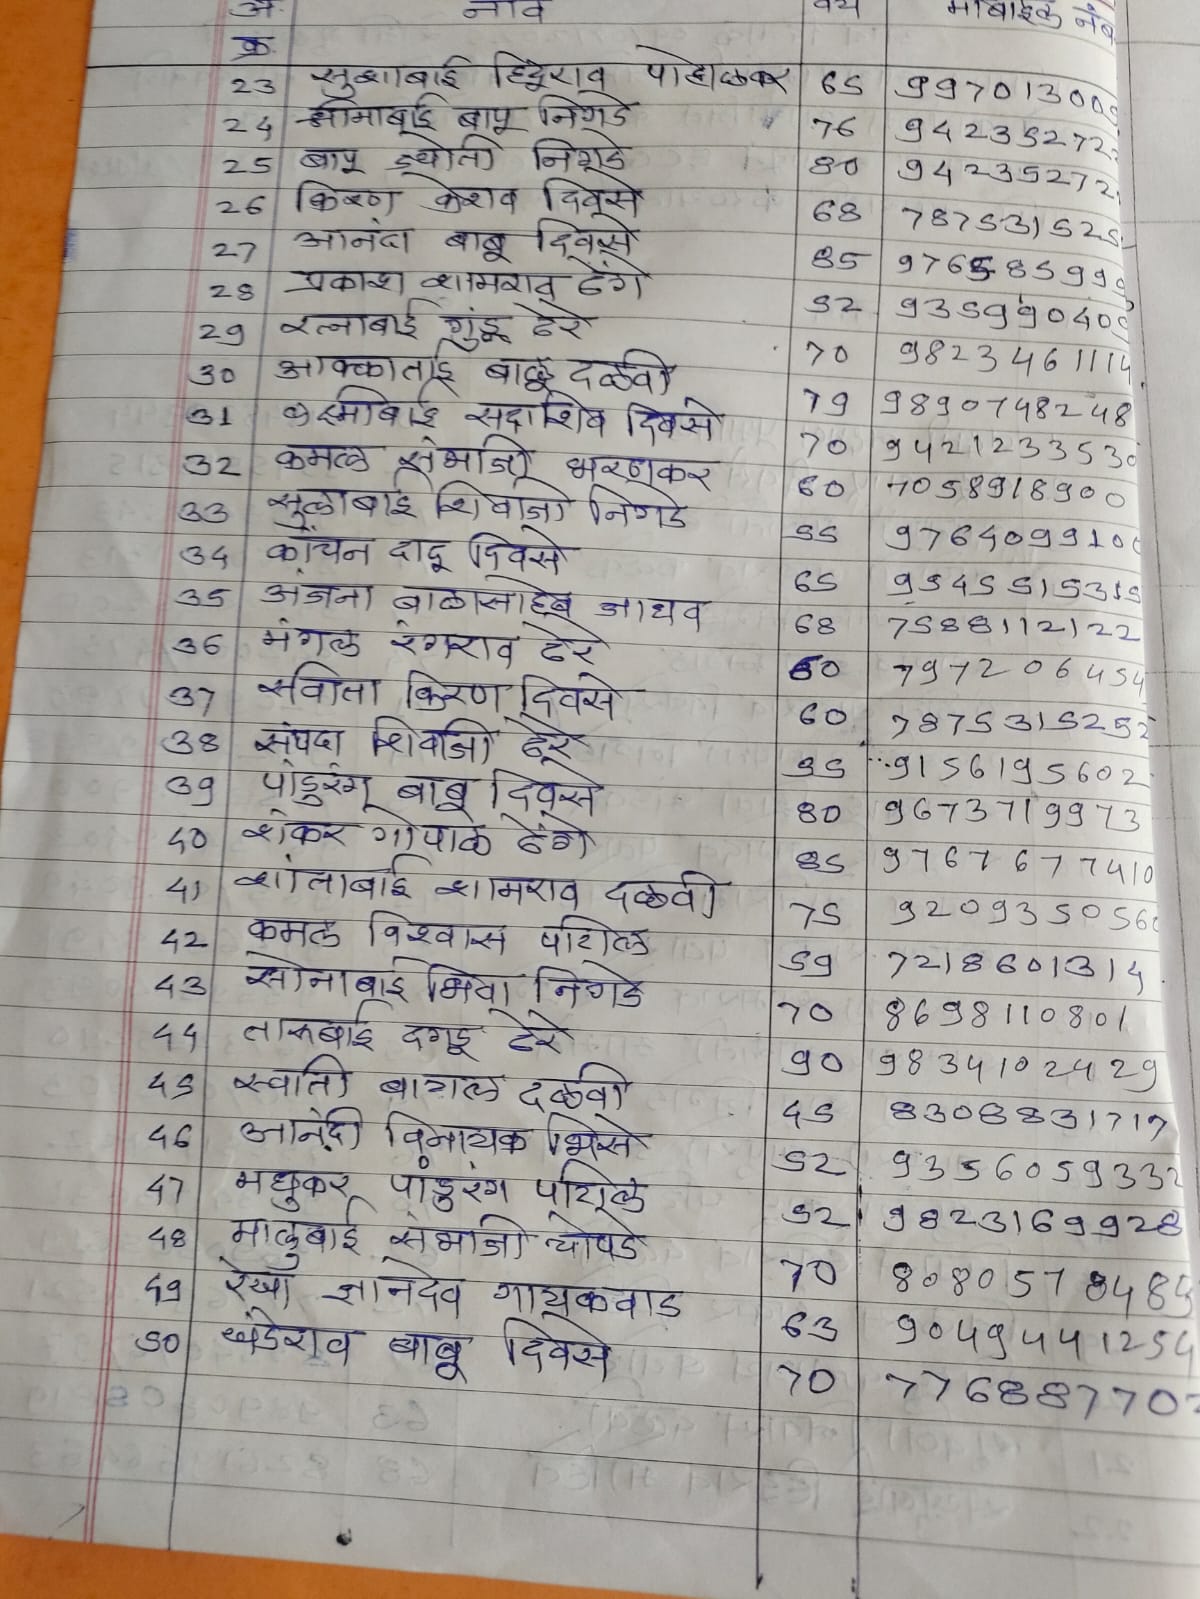 अ. नाव वय मोबाईल नंब
क्र.
23 हिंदुराव 65 997013000
24 बापू निगडे 76 942352722
25 बापू ज्योती निगडे 80 94235272
26 किरण केशव दिवसे 68 787531525
27 आनंदा बाबू दिवसे 85 976585999
28 प्रकाश शामराव ढेंगे 52 935990400
29 रत्नाबाई गुंडू ढेरे 70 9823461114
30 आक्काताई बाळू दळवी 79 9890748248
31 लक्ष्मीबाई सदाशिव दिवसे 70 9421233530
32 कमल संभाजी भरणकर 60 7058918900
33 सुलाबाई शिवाजी निगडे 55 9764099100
34 कांचन दादू दिवसे 65 9545515315
35 अंजना बाळासाहेब जाधव 68 7588112122
36 मंगल रंगराव ढेरे 60 7972206454
37 सविता किरण दिवसे 60 7875315252
38 संपदा शिवाजी ढेरे 55 9156195602
39 पांडुरंग बाबू दिवसे 80 9673719973
40 शंकर गोपाळ ढेंगे 85 9767677410
41 शांताबाई शामराव दळवी 75 9209350560
42 कमल विश्वास पाटील 59 7218601314
43 सोनाबाई भिवा निगडे 70 8698110801
44 तारुबाई दगडू ढेरे 90 9834102429
45 स्वाती दळवी 45 8308831717
46 आनंदी विनायक भिसे 52 9356059332
47 मधुकर पांडुरंग पाटील 52 9823169928
48 मालुबाई संभाजी चोपडे 70 808057848
49 रेखा ज्ञानदेव गायकवाड 63 9049441254
50 खंडेराव बाबू दिवसे 70 776887702